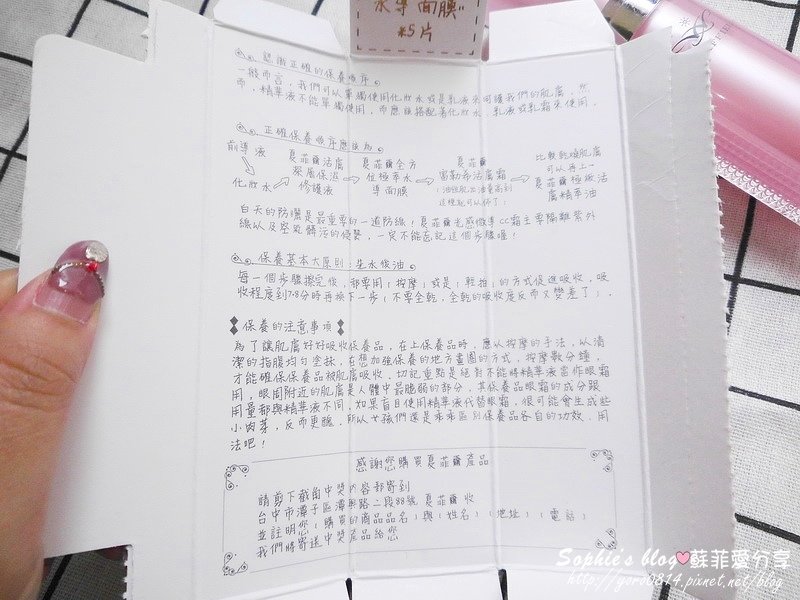 水導面膜"
*5片
認識正確的保養順序
一般而言，我們可以單獨使用化妝水或是乳液來呵護我們的肌膚，然
而，精華液不能單獨使用，而應該搭配著化妝水、乳液或乳霜來使用。
正確保養順序應該為
前導液
化妝水
夏菲爾活膚
深層保濕
修護液
夏菲爾全方
位極萃水
導面膜
夏菲爾
富勒希活膚霜
(油性肌出油量高到
這樣就可以停了)
比較乾燥肌膚
可以再上一
夏菲爾極緻活
膚精華油
白天的防曬是最重要的一道防線！夏菲爾光感微導CC霜主要隔離紫外
線以及空氣髒污的侵襲，一定不能忘記這個步驟喔！
保養基本大原則：先水後油
每一個步驟擦完後，都要用(按摩)或是(輕拍)的方式促進吸收，吸
收程度到7-8分時再換下一步(不要全乾，全乾的吸收度反而又變差了)。
◆保養的注意事項◆
為了讓肌膚好好吸收保養品，在上保養品時，應以按摩的手法，以清
潔的指腹均勻塗抹，在想加強保養的地方畫圈的方式，按摩數分鐘，
才能確保保養品被肌膚吸收。切記重點是絕對不能將精華液當作眼霜
用，眼周附近的肌膚是人體中最脆弱的部分，其保養品眼霜的成分跟
用量都與精華液不同，如果盲目使用精華液代替眼霜，很可能會生成些
小肉芽，反而更醜，所以女孩們還是乖乖區別保養品各自的功效、用
法吧！
感謝您購買夏菲爾產品
請剪下截角中獎內容郵寄到
台中市潭子區潭興路二段88號 夏菲爾收
並註明您(購買的商品品名)與(姓名)(地址)(電話)
我們將寄送中獎產品給您
Sophie's blog♥蘇菲愛分享
http://yoro0814.pixnet.net/blog